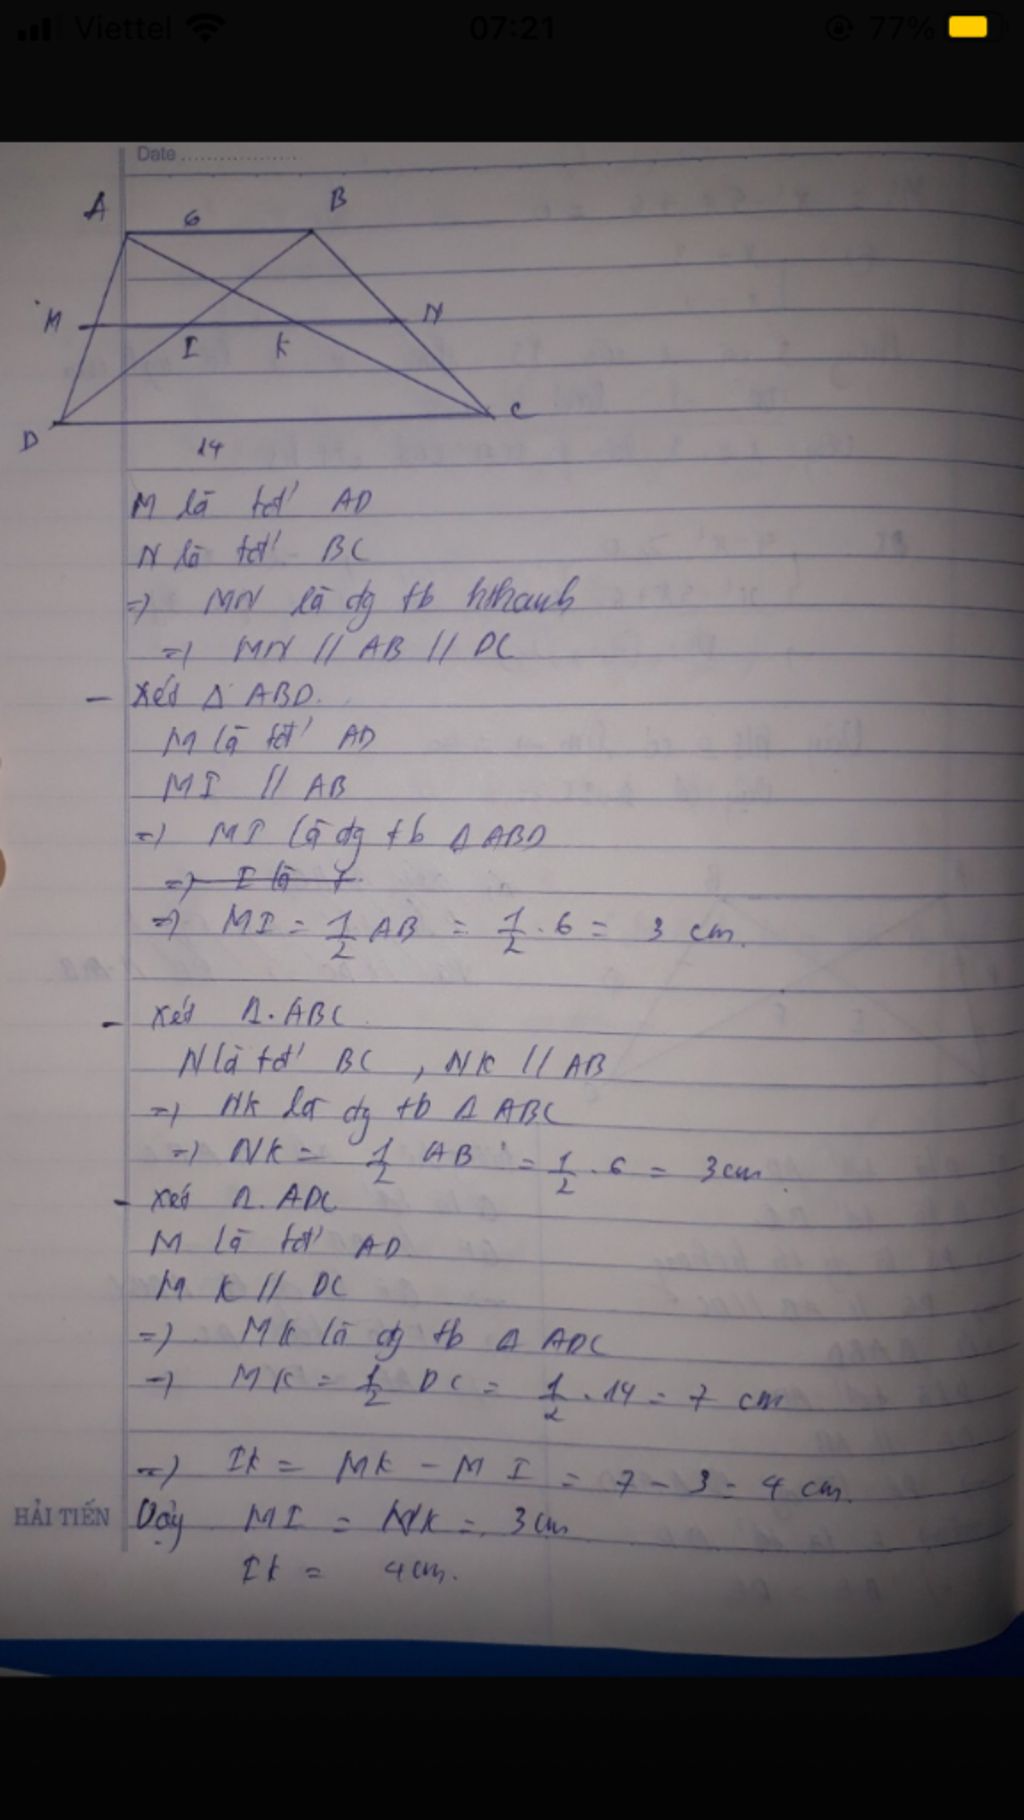 Viettel 07:21 77%
Date
A 6 B
M I K N
D 14 C
M là tđ' AD
N là tđ' BC
=) MN là đg tb hthanh
=) MN // AB // DC
- Xét Δ ABD.
M là tđ' AD
MI // AB
=) MI là đg tb Δ ABD
=) I là T
=) MI = 1/2 AB = 1/2 . 6 = 3 cm.
- Xét Δ. ABC
N là tđ' BC , NK // AB
=) NK là đg tb Δ ABC
=) NK = 1/2 AB = 1/2 . 6 = 3cm
- Xét Δ. ADC
M là tđ' AD
MK // DC
=) MK là đg tb Δ ADC
=) MK = 1/2 DC = 1/2 . 14 = 7 cm
=) IK = MK - MI = 7 - 3 = 4 cm.
HẢI TIẾN Vậy MI = NK = 3cm
IK = 4cm.